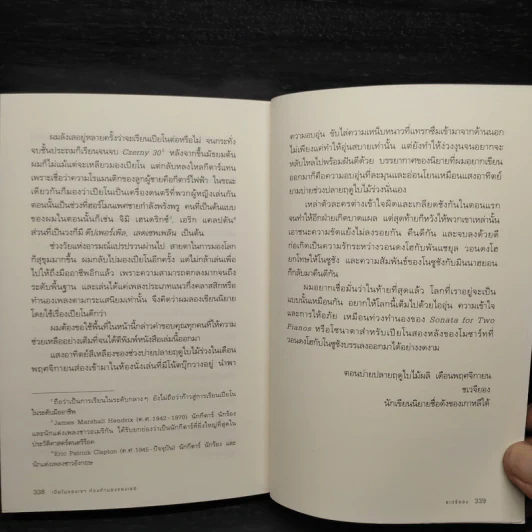 ผมลังเลอยู่หลายครั้งว่าจะเรียนเปียโนต่อหรือไม่ จนกระทั่ง
จบชั้นประถมก็เรียนจนจบ Czerny 30⁴ หลังจากขึ้นมัธยมต้น
ผมก็ไม่แม้แต่จะเหลียวมองเปียโน แต่กลับหลงใหลกีตาร์แทน
เพราะเชื่อว่าความโรแมนติกของลูกผู้ชายคือกีตาร์ไฟฟ้า ในขณะ
เดียวกันก็มองว่าเปียโนเป็นเครื่องดนตรีที่พวกผู้หญิงเล่นกัน
ตอนนั้นเป็นช่วงที่ฮอร์โมนเพศชายกำลังพรั่งพรู คนที่เป็นต้นแบบ
ของผมในตอนนั้นก็เช่น จิมิ เฮนดริกซ์⁵, เอริก แคลปตัน⁶
ส่วนที่เป็นวงก็มี ดีปเพอร์เพิล, เลดเซพเพลิน เป็นต้น
ช่วงวัยแห่งอารมณ์แปรปรวนผ่านไป สายตาในการมองโลก
ก็สุขุมมากขึ้น ผมกลับไปมองเปียโนอีกครั้ง แต่ไม่กล้าเล่นเพื่อ
ไปให้ถึงมืออาชีพอีกแล้ว เพราะความสามารถตกลงมาจนถึง
ระดับพื้นฐาน และเล่นได้แค่เพลงประเภทแนวกึ่งคลาสสิกหรือ
ทำนองเพลงตามกระแสนิยมเท่านั้น จึงคิดว่าผมลองเขียนนิยาย
โดยใช้เรื่องเปียโนดีกว่า
ผมต้องขอใช้พื้นที่ในหน้านี้กล่าวคำขอบคุณทุกคนที่ให้ความ
ช่วยเหลืออย่างเต็มที่จนได้ตีพิมพ์หนังสือเล่มนี้ออกมา
แสงอาทิตย์สีเหลืองของช่วงบ่ายปลายฤดูใบไม้ร่วงในเดือน
พฤศจิกายนส่องเข้ามาในห้องนั่งเล่นที่มีโน้ตบุ๊กวางอยู่ นำพา
⁴ ถือว่าเป็นการเรียนในระดับกลางๆ ยังไม่ถือว่าก้าวสู่การเรียนเปียโน
ในระดับมืออาชีพ
⁵ James Marshall Hendrix (ค.ศ. 1942-1970) นักกีตาร์ นักร้อง
และนักแต่งเพลงชาวอเมริกัน ได้รับยกย่องว่าเป็นนักกีตาร์ที่ยิ่งใหญ่ที่สุดใน
ประวัติศาสตร์ดนตรีร็อค
⁶ Eric Patrick Clapton (ค.ศ. 1945-ปัจจุบัน) นักกีตาร์ นักร้อง และ
นักแต่งเพลงชาวอังกฤษ
338
ความอบอุ่น ขับไล่ความเหน็บหนาวที่แทรกซึมเข้ามาจากด้านนอก
ไม่เพียงแค่ทำให้อุ่นสบายเท่านั้น แต่ยังทำให้ง่วงงุนจนอยากจะ
หลับใหลไปพร้อมฝันดีด้วย บรรยากาศของนิยายที่ผมอยากเขียน
ออกมาก็คือความอบอุ่นที่ละมุนและอ่อนโยนเหมือนแสงอาทิตย์
ยามบ่ายช่วงปลายฤดูใบไม้ร่วงนั่นเอง
เหล่าตัวละครต่างเข้าใจผิดและเกลียดชังกันในตอนแรก
จนทำให้อีกฝ่ายเกิดบาดแผล แต่สุดท้ายก็หวังให้พวกเขาเหล่านั้น
เอาชนะความขัดแย้งไม่ลงรอยกัน คืนดีกัน และจบลงด้วยดี
ก่อเกิดเป็นความรักระหว่างวอนดงโฮกับพันแชยูล วอนดงโฮ
ยกโทษให้โนซูจัง และความสัมพันธ์ของโนซูจังกับมินนาฮยอน
ก็กลับมาคืนดีกัน
ผมอยากเชื่อมั่นว่าในท้ายที่สุดแล้ว โลกที่เราอยู่จะเป็น
แบบนั้นเหมือนกัน อยากให้โลกนี้เต็มไปด้วยไออุ่น ความเข้าใจ
และการให้อภัย เหมือนท่วงทำนองของ Sonata for Two
Pianos หรือโซนาตาสำหรับเปียโนสองหลังของโมซาร์ทที่
วอนดงโฮกับโนซูจังบรรเลงออกมาได้อย่างงดงาม
ตอนบ่ายปลายฤดูใบไม้ผลิ เดือนพฤศจิกายน
ชเวจียอง
นักเขียนนิยายชื่อดังของเกาหลีใต้
ชเวจียอง
339